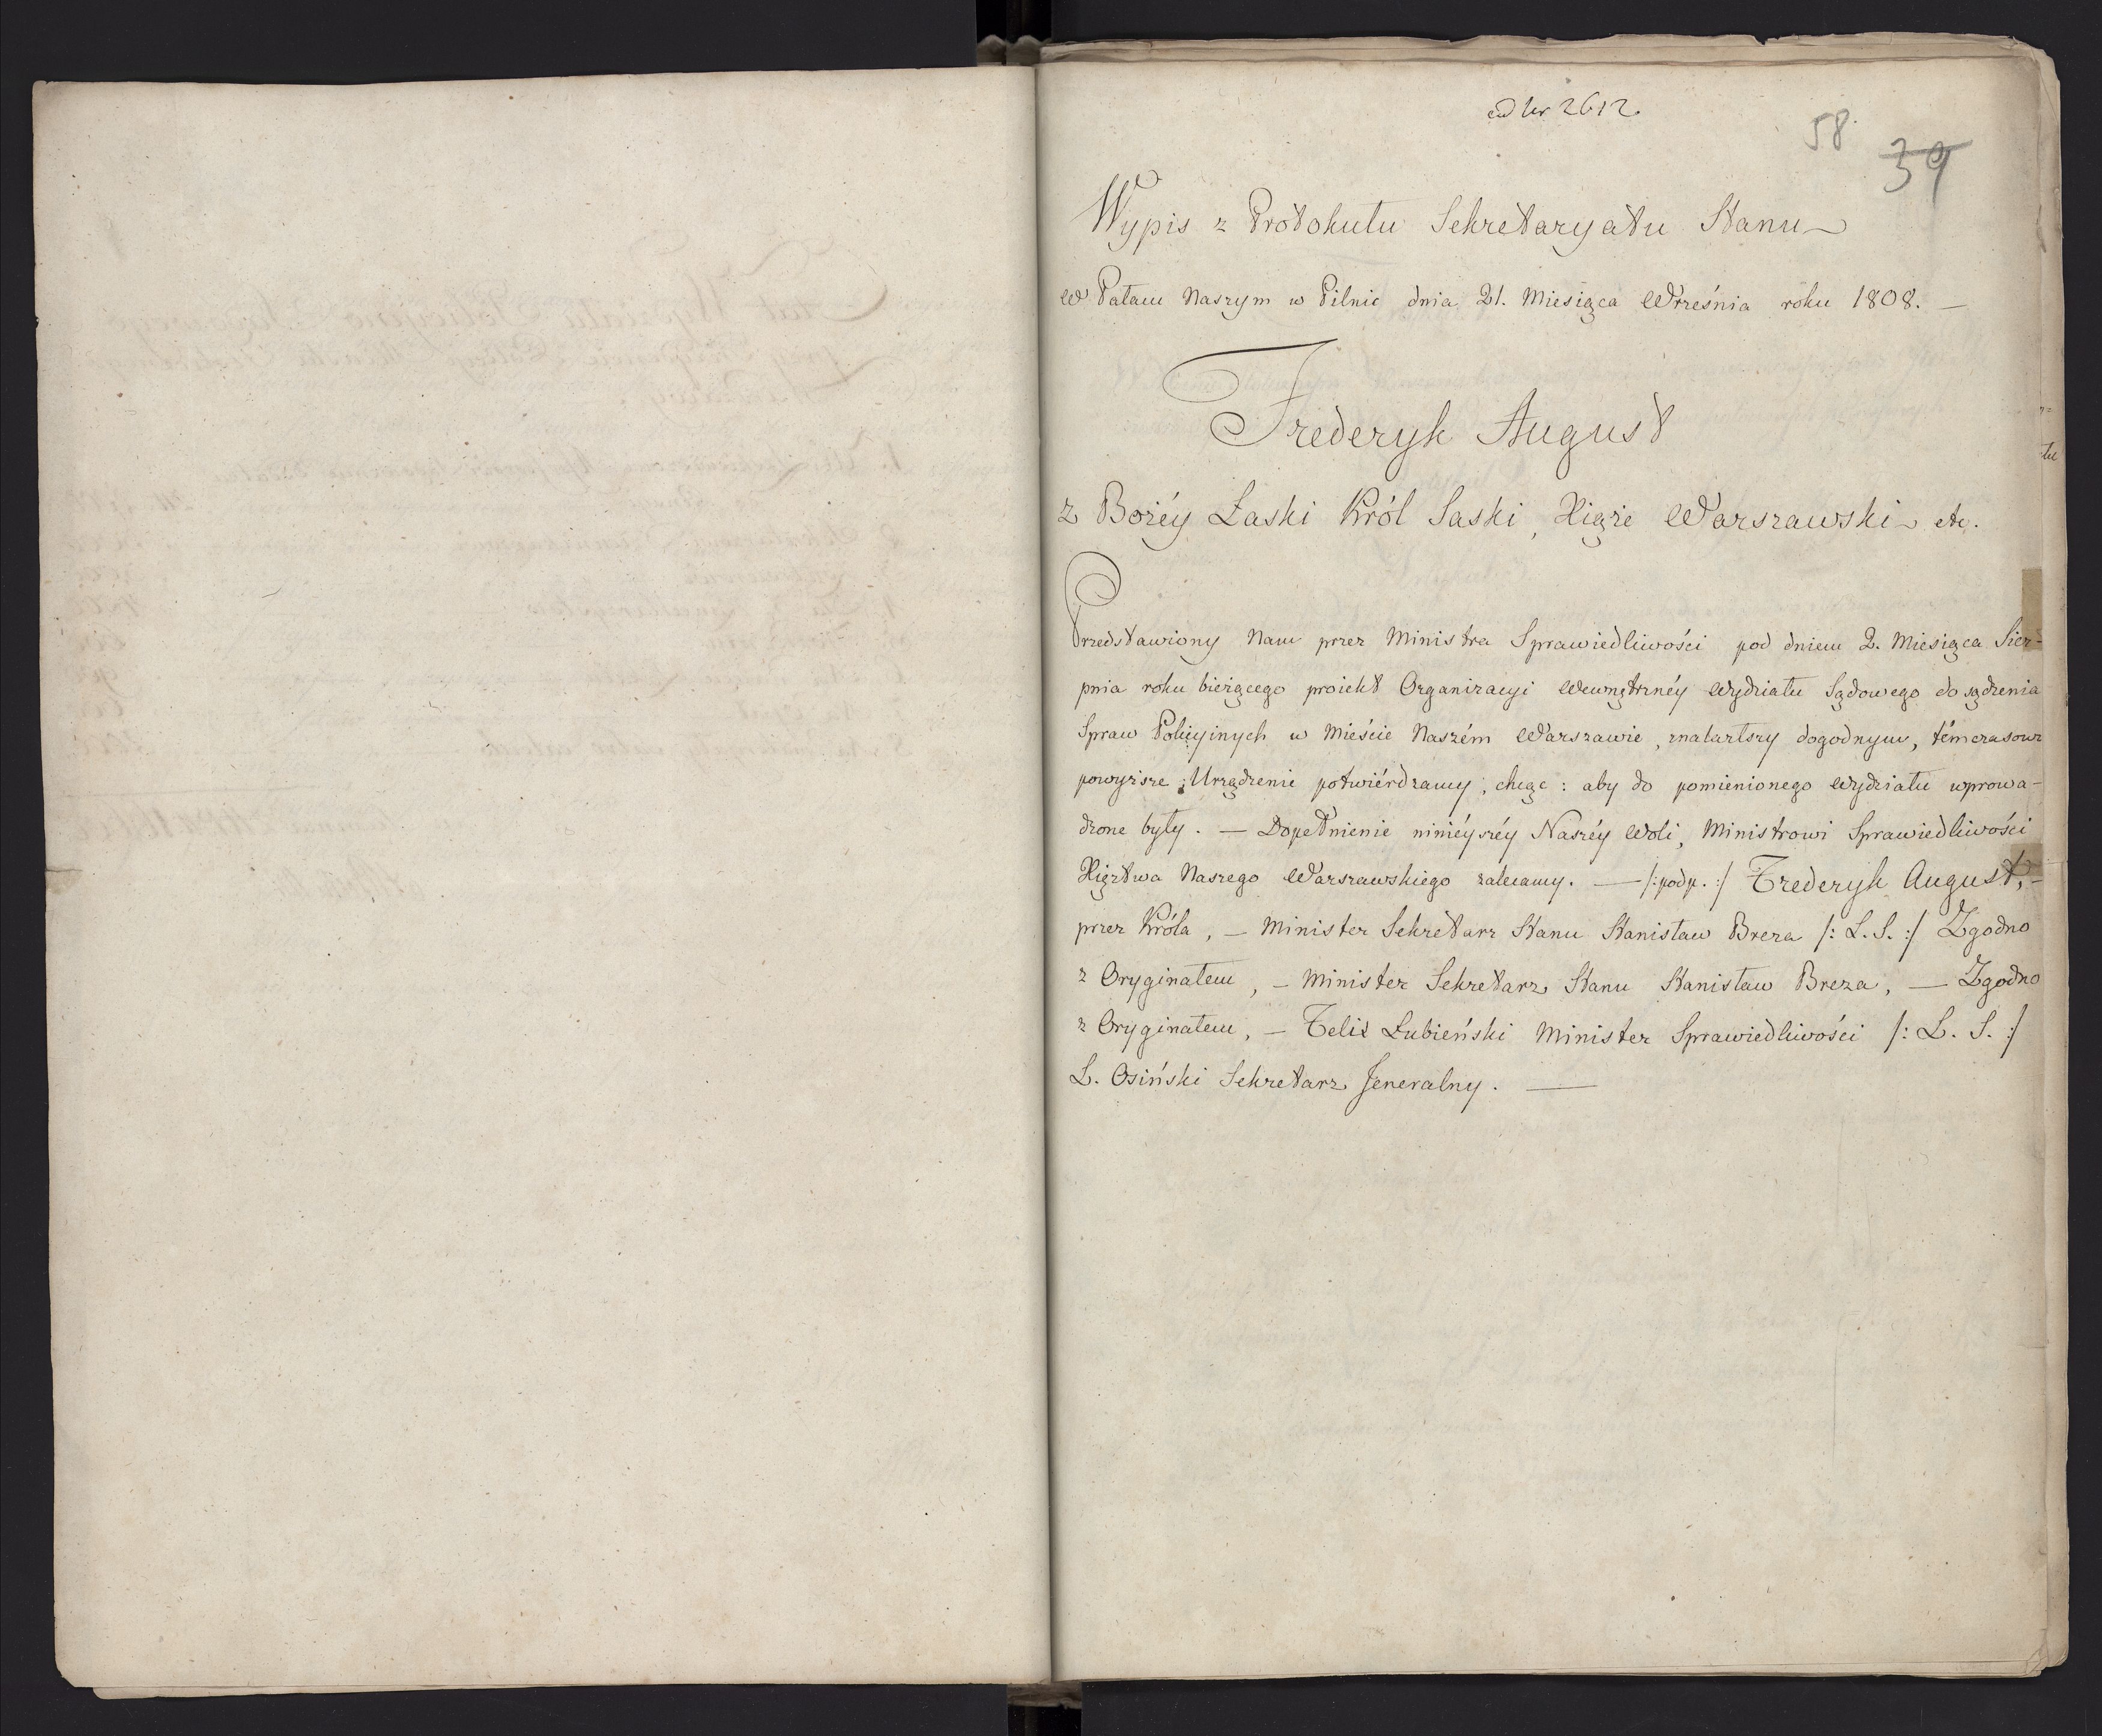 ad Nr 2612.
58.
39
Wypis z Protokułu Sekretaryatu Stanu
W Pałacu Naszym w Pilnic dnia 21. Miesiąca Września roku 1808. —
Frederyk August
z Bożéy Łaski Król Saski, Xiąże Warszawski etc.
Przedstawiony Nam przez Ministra Sprawiedliwości pod dniem 2. Miesiąca Sier-
pnia roku bieżącego proiekt Organizacyi Wewnętrznéy Wydziału Sądowego do sądzenia
Spraw Policyinych w Mieście Naszém Warszawie, znalazłszy dogodnym, témczasowe
powyższe Urządzenie potwiérdzamy, chcąc: aby do pomienionego Wydziału wprowa-
dzone były. — Dopełnienie ninieyszéy Naszéy Woli, Ministrowi Sprawiedliwości
Xięztwa Naszego Warszawskiego zalecamy. — /:podp.:/ Frederyk August, -
przez Króla, — Minister Sekretarz Stanu Stanisław Breza /: L. S. :/ Zgodno
z Oryginałem, — Minister Sekretarz Stanu Stanisław Breza, — Zgodno
z Oryginałem, — Felix Łubieński Minister Sprawiedliwości /: L. S. :/
L. Osiński Sekretarz Jeneralny. —